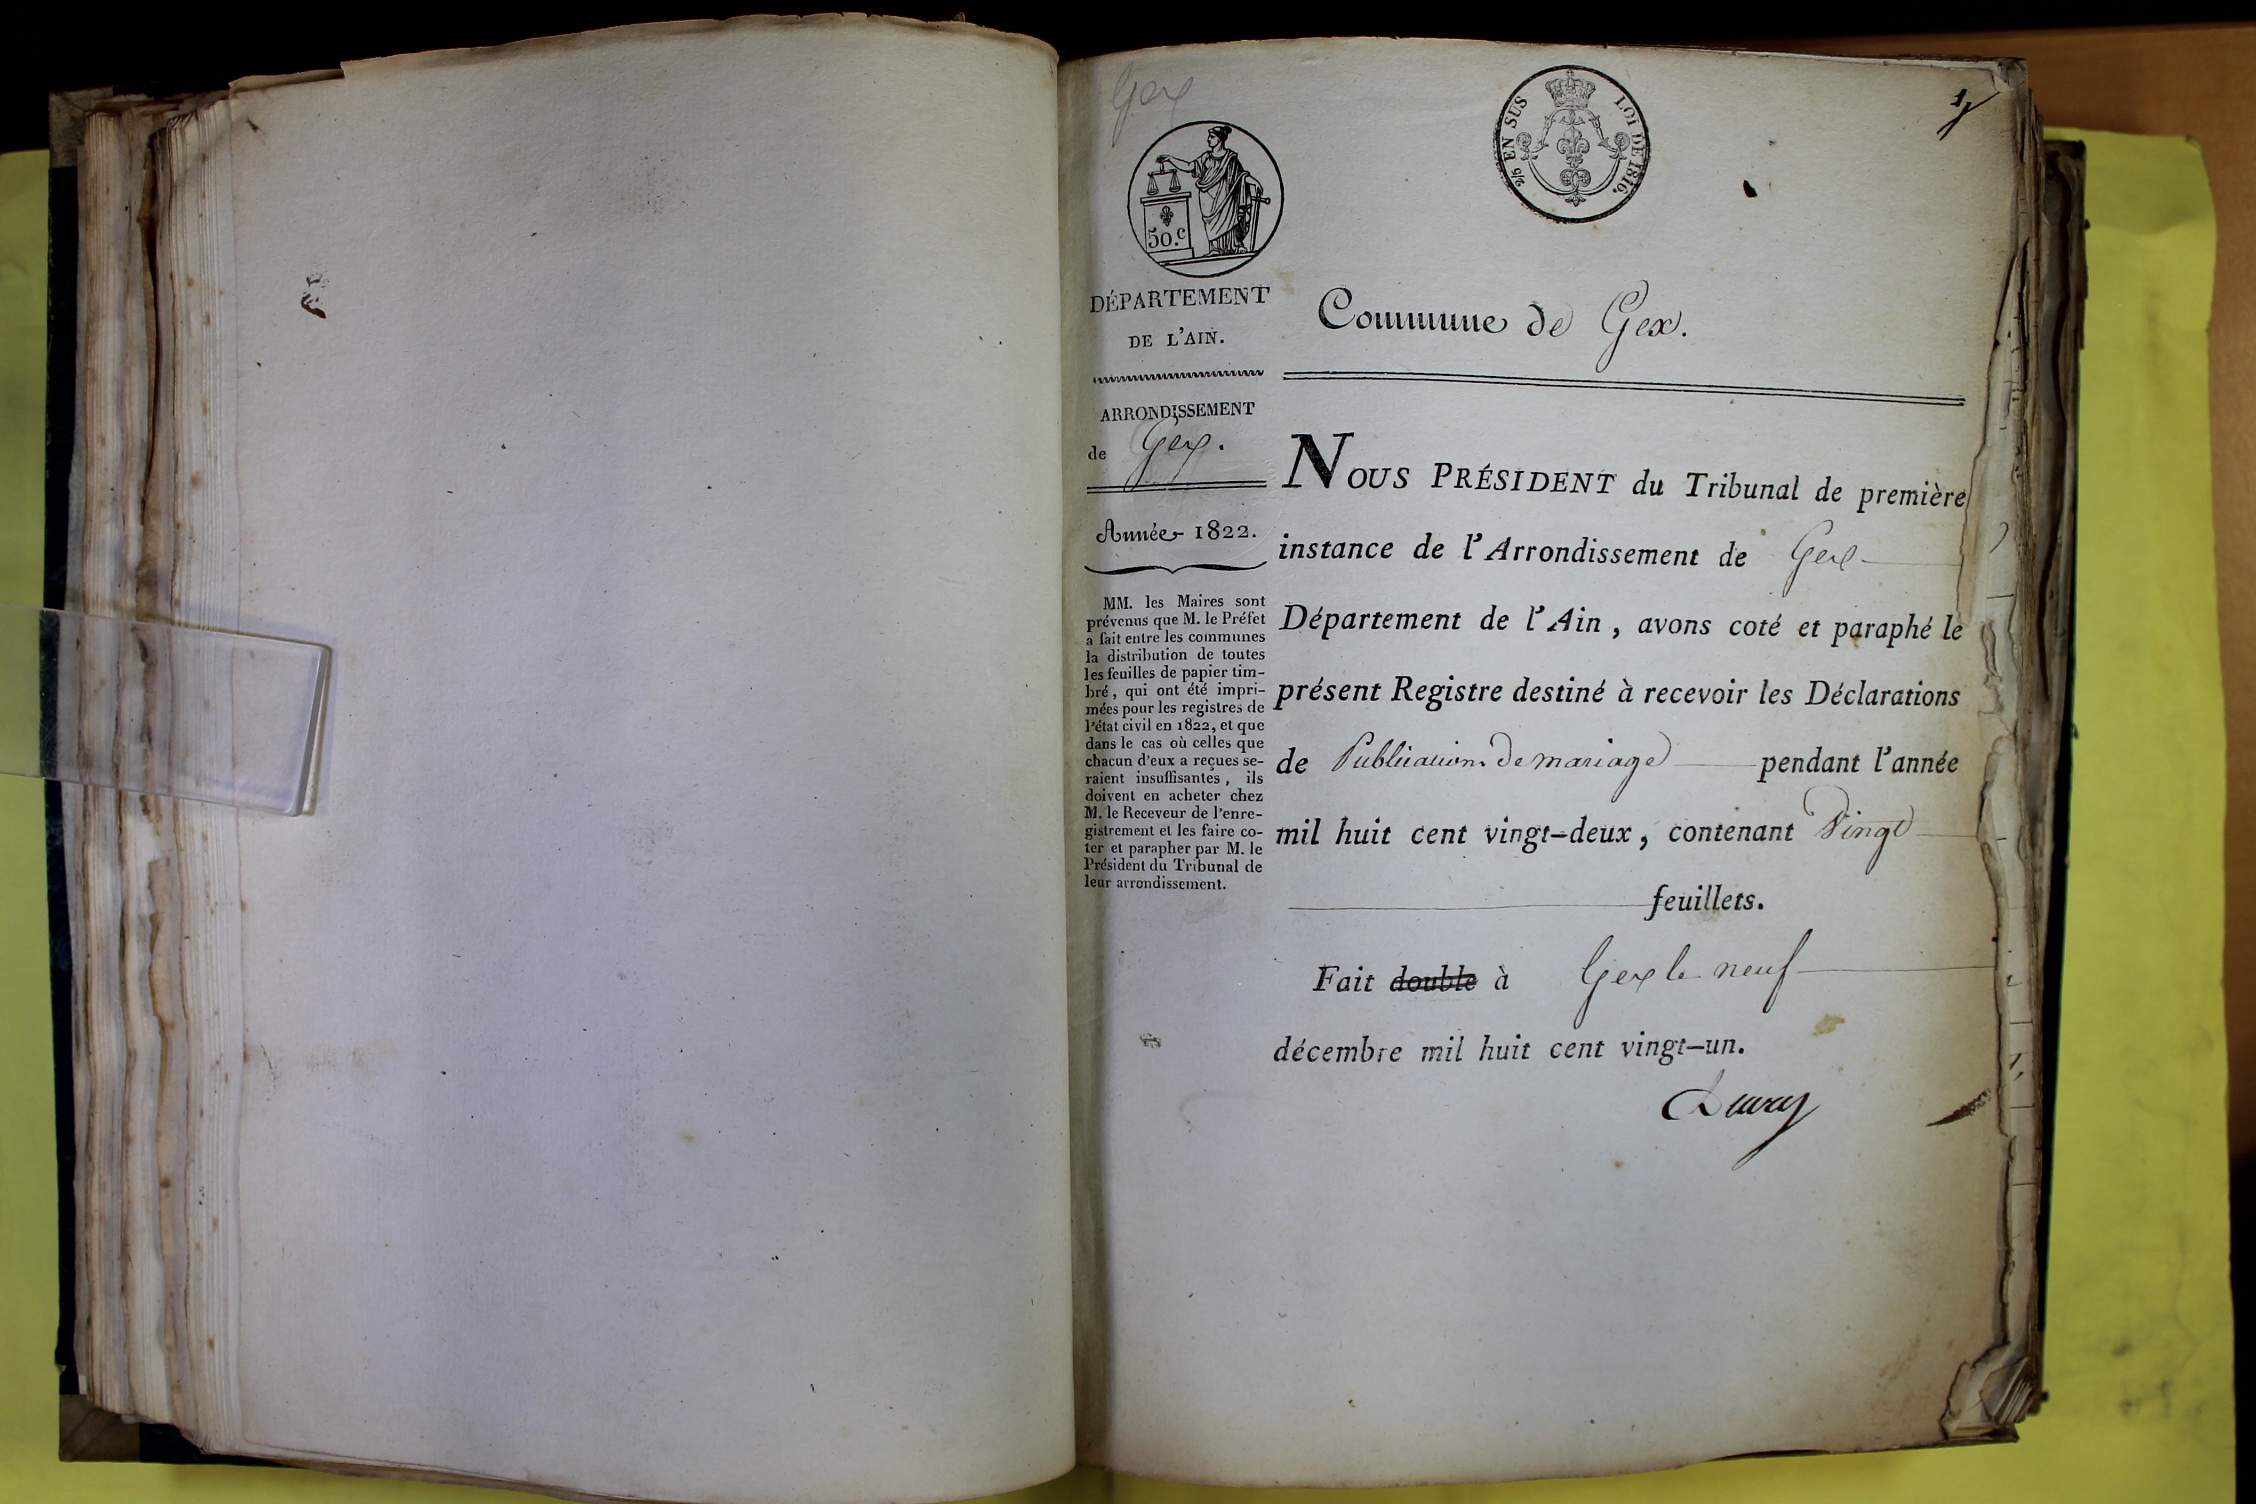 Gex
50.c
2/5 EN SUS
LOI DE 1816.
DÉPARTEMENT
DE L'AIN.
ARRONDISSEMENT
de Gex.
Année 1822.
MM. les Maires sont
prévenus que M. le Préfet
a fait entre les communes
la distribution de toutes
les feuilles de papier tim-
bré, qui ont été impri-
mées pour les registres de
l'état civil en 1822, et que
dans le cas où celles que
chacun d'eux a reçues se-
raient insuffisantes, ils
doivent en acheter chez
M. le Receveur de l'enre-
gistrement et les faire co-
ter et parapher par M. le
Président du Tribunal de
leur arrondissement.
Commune de Gex.
NOUS PRÉSIDENT du Tribunal de première
instance de l'Arrondissement de Gex
Département de l'Ain, avons coté et paraphé le
présent Registre destiné à recevoir les Déclarations
de Publications de mariage pendant l'année
mil huit cent vingt-deux, contenant Vingt
feuillets.
Fait double à Gex le neuf
décembre mil huit cent vingt-un.